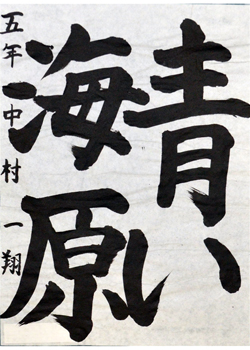 青い
海原
五年中村一翔